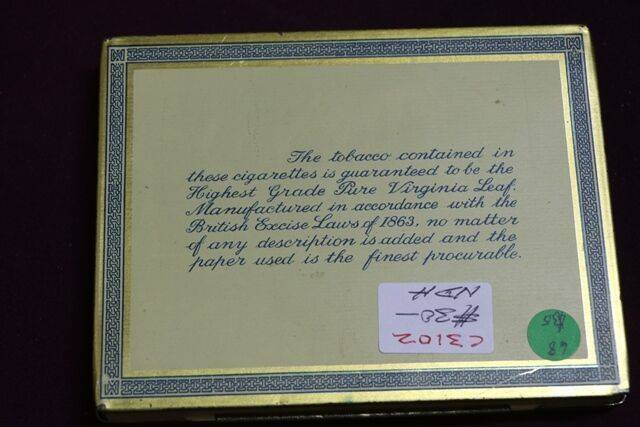 The tobacco contained in
these cigarettes is guaranteed to be the
Highest Grade Pure Virginia Leaf.
Manufactured in accordance with the
British Excise Laws of 1863, no matter
of any description is added and the
paper used is the finest procurable.
NDH
#30-
C3102
68
$35